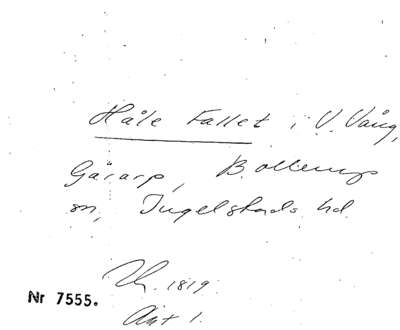 Håle Fallet i V. Vång,
Gårarp, Bollerup
sn, Ingelstads hd.
1819.
Nr 7555.
Akt 1.